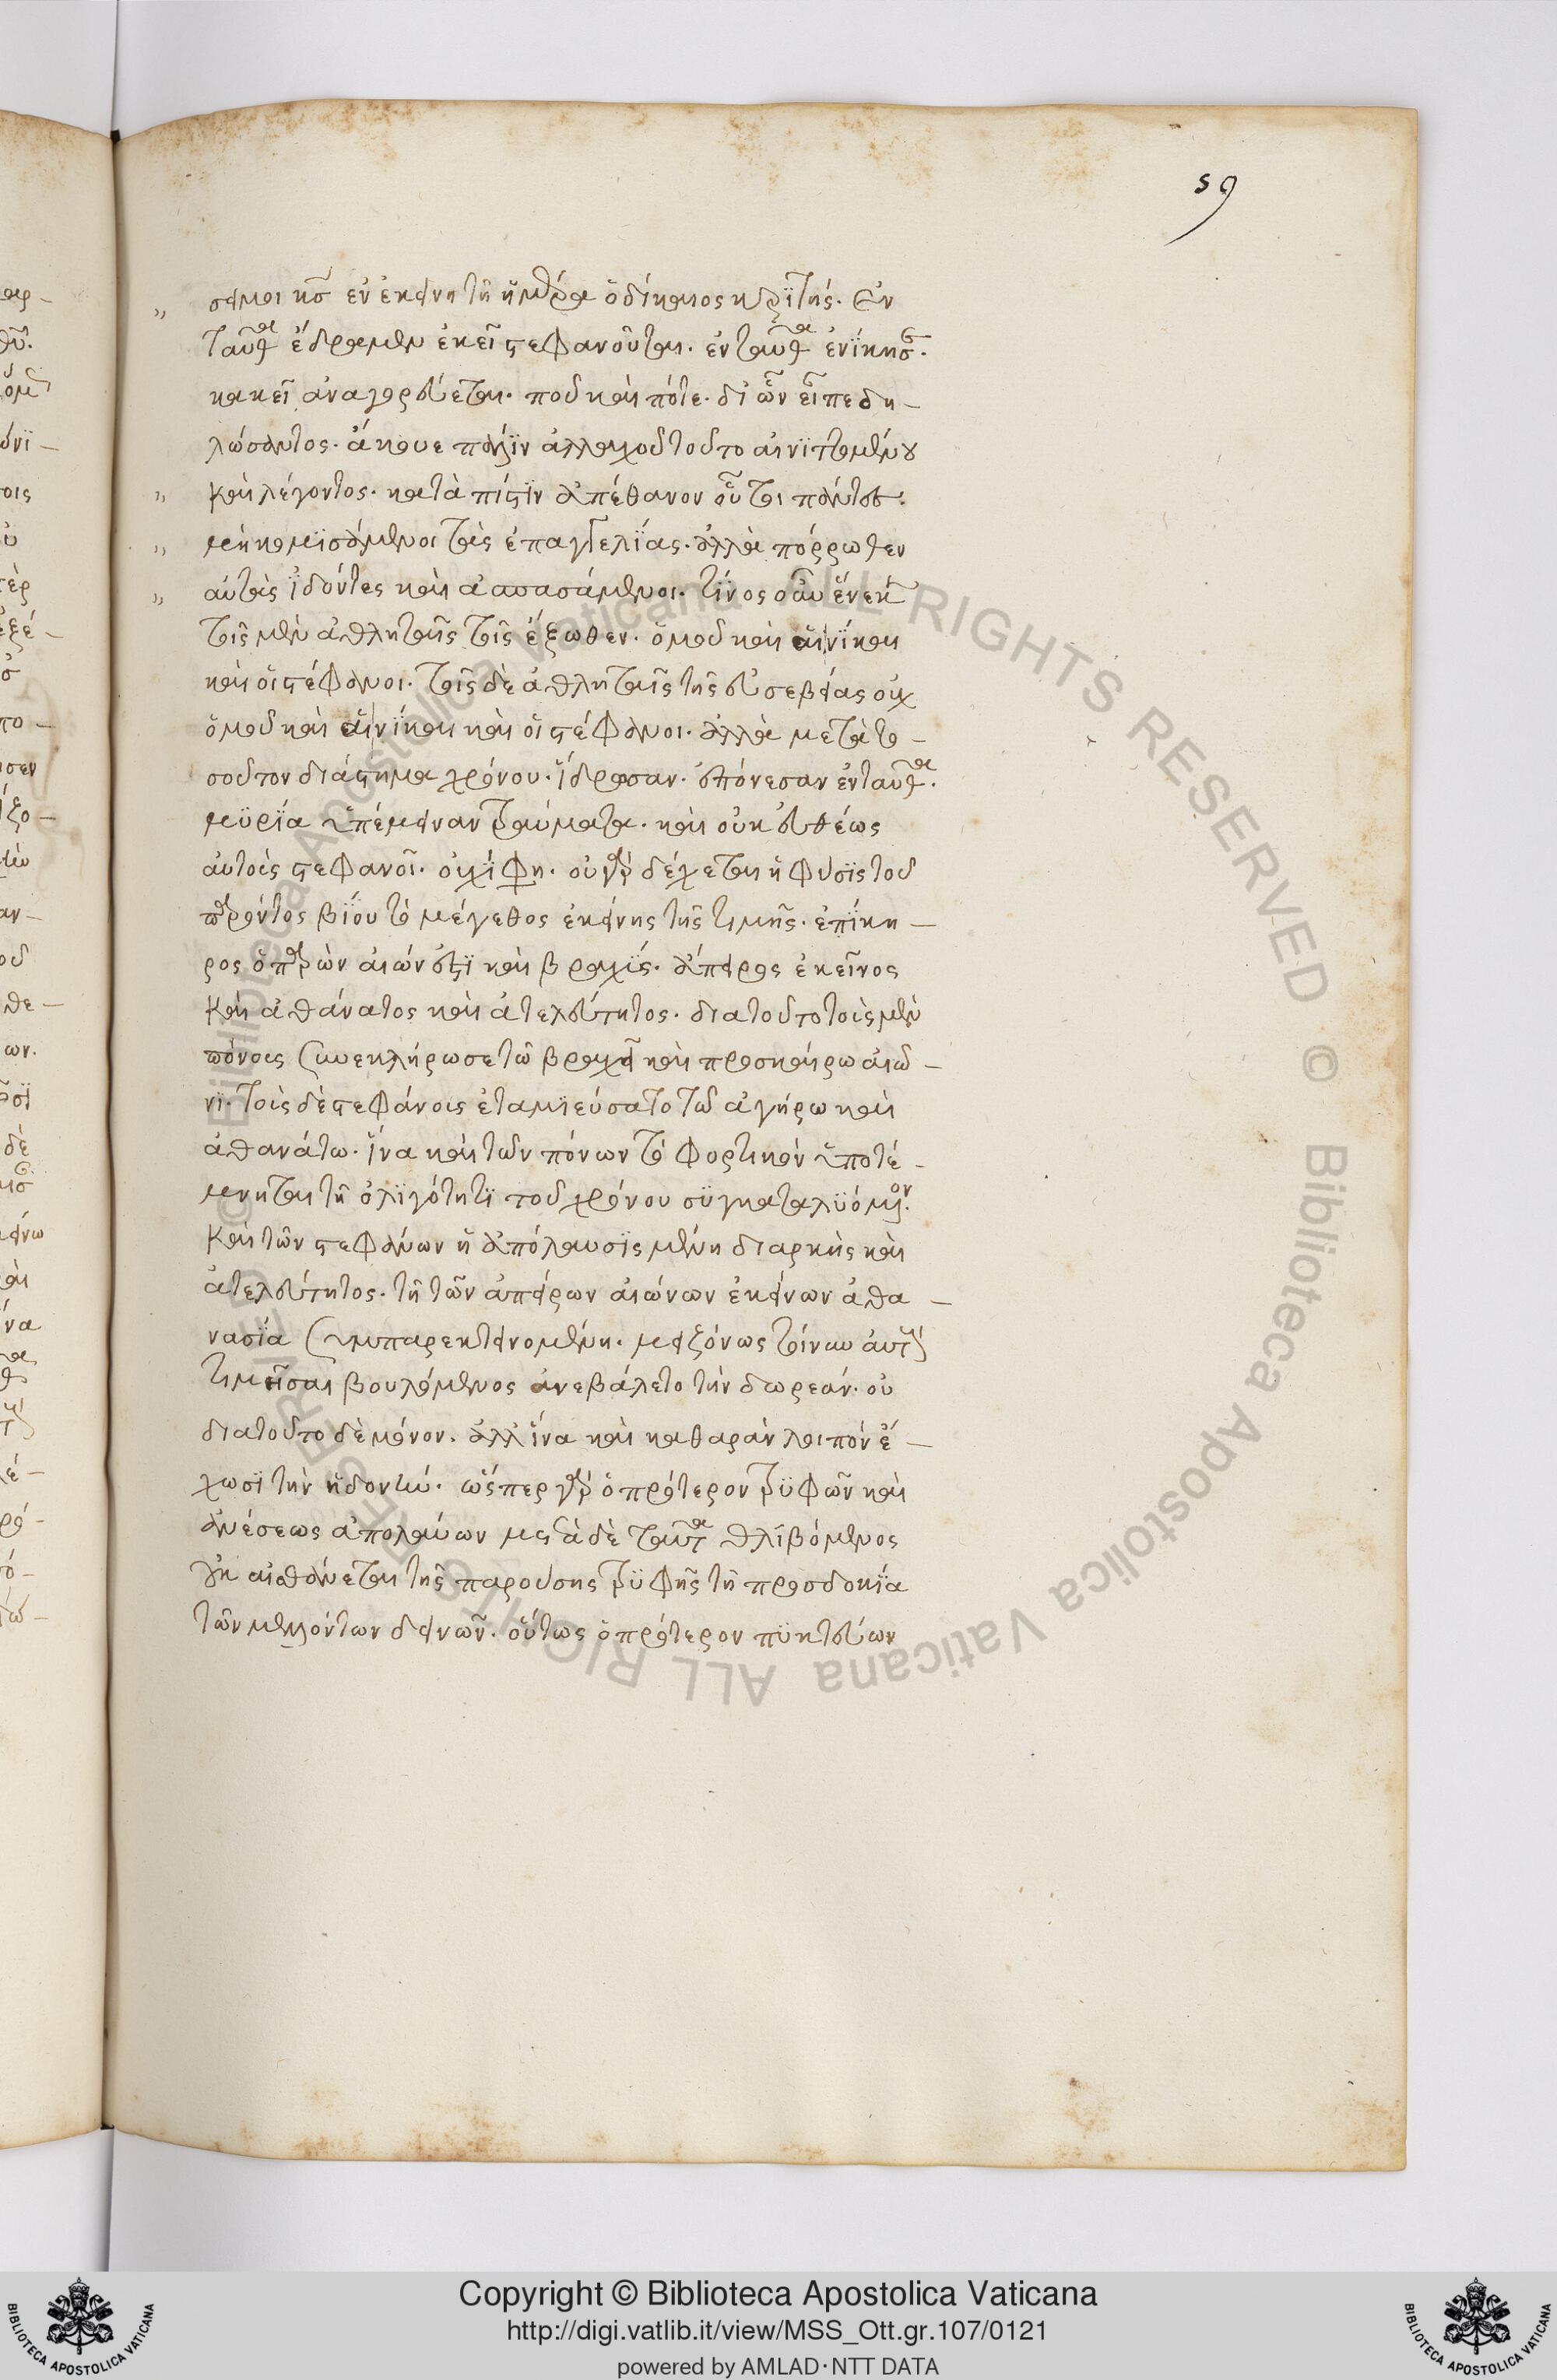 59
σει μοι κ̅ς̅ ἐν ἐκείνη τῆ ἡμέρα ὁ δίκαιος κριτής. Ἐν
ταῦθα ἔδραμεν ἐκεῖ στεφανοῦται. ἐνταῦθα ἐνίκησε.
κακεῖ ἀναγορεύεται. ποῦ καὶ πότε. δι ὧν εἶπε δη-
λώσαντος. ἄκουε πάλιν ἀλλαχοῦ τοῦτο αἰνιττομένου
καὶ λέγοντος. κατὰ πίστιν ἀπέθανον οὗτοι πάντες.
μὴ κομισάμενοι τὰς ἐπαγγελίας. ἀλλὰ πόρρωθεν
αὐτὰς ἰδόντες καὶ ἀσπασάμενοι. τίνος οὖν ἕνεκεν
τοῖς μὲν ἀθληταῖς τοῖς ἔξωθεν. ὁμοῦ καὶ αἱ νίκαι
καὶ οἱ στέφανοι. τοῖς δὲ ἀθληταῖς τῆς εὐσεβείας οὐχ
ὁμοῦ καὶ αἱ νίκαι καὶ οἱ στέφανοι. ἀλλὰ μετὰ το-
σοῦτον διάστημα χρόνου. ἵδρωσαν. ἐπόνεσαν ἐνταῦθα.
μυρία ὑπέμειναν τραύματα. καὶ οὐκ εὐθέως
αὐτοὺς στεφανοῖ. οὐχί φη. οὐ γὰρ δέχεται ἡ φύσις τοῦ
παρόντος βίου τὸ μέγεθος ἐκείνης τῆς τιμῆς. ἐπίκη-
ρος ὁ παρὼν αἰών ἐστι καὶ βραχύς. ἄπειρος ἐκεῖνος
καὶ ἀθάνατος καὶ ἀτελεύτητος. διατοῦτο τοὺς μὲν
πόνους συνεκλήρωσε τῶ βραχεῖ καὶ προσκαίρω αἰῶ-
νι. τοὺς δὲ στεφάνους ἐταμιεύσατο τῶ ἀγήρω καὶ
ἀθανάτω. ἵνα καὶ τῶν πόνων τὸ φορτικὸν ὑποτέ-
μνηται τῆ ὀλιγότητι τοῦ χρόνου συγκαταλυόμενον.
καὶ τῶν στεφάνων ἡ ἀπόλαυσις μένη διαρκὴς καὶ
ἀτελεύτητος. τῆ τῶν ἀπείρων αἰώνων ἐκείνων ἀθα-
νασία συμπαρεκτεινομένη. μειζόνως τοίνυν αὐτοὺς
τιμῆσαι βουλόμενος ἀνεβάλετο τὴν δωρεάν. οὐ
διατοῦτο δὲ μόνον. ἀλλ ἵνα καὶ καθαρὰν λοιπὸν ἔ-
χωσι τὴν ἡδονήν. ὥσπερ γὰρ ὁ πρότερον τρυφῶν καὶ
ἀνέσεως ἀπολαύων μετὰ δὲ ταῦτα θλιβόμενος
οὐκ αἰσθάνεται τῆς παρούσης τρυφῆς τῆ προσδοκία
τῶν μελλόντων δεινῶν. οὕτως ὁ πρότερον πυκτεύων
Copyright © Biblioteca Apostolica Vaticana
http://digi.vatlib.it/view/MSS_Ott.gr.107/0121
powered by AMLAD·NTT DATA